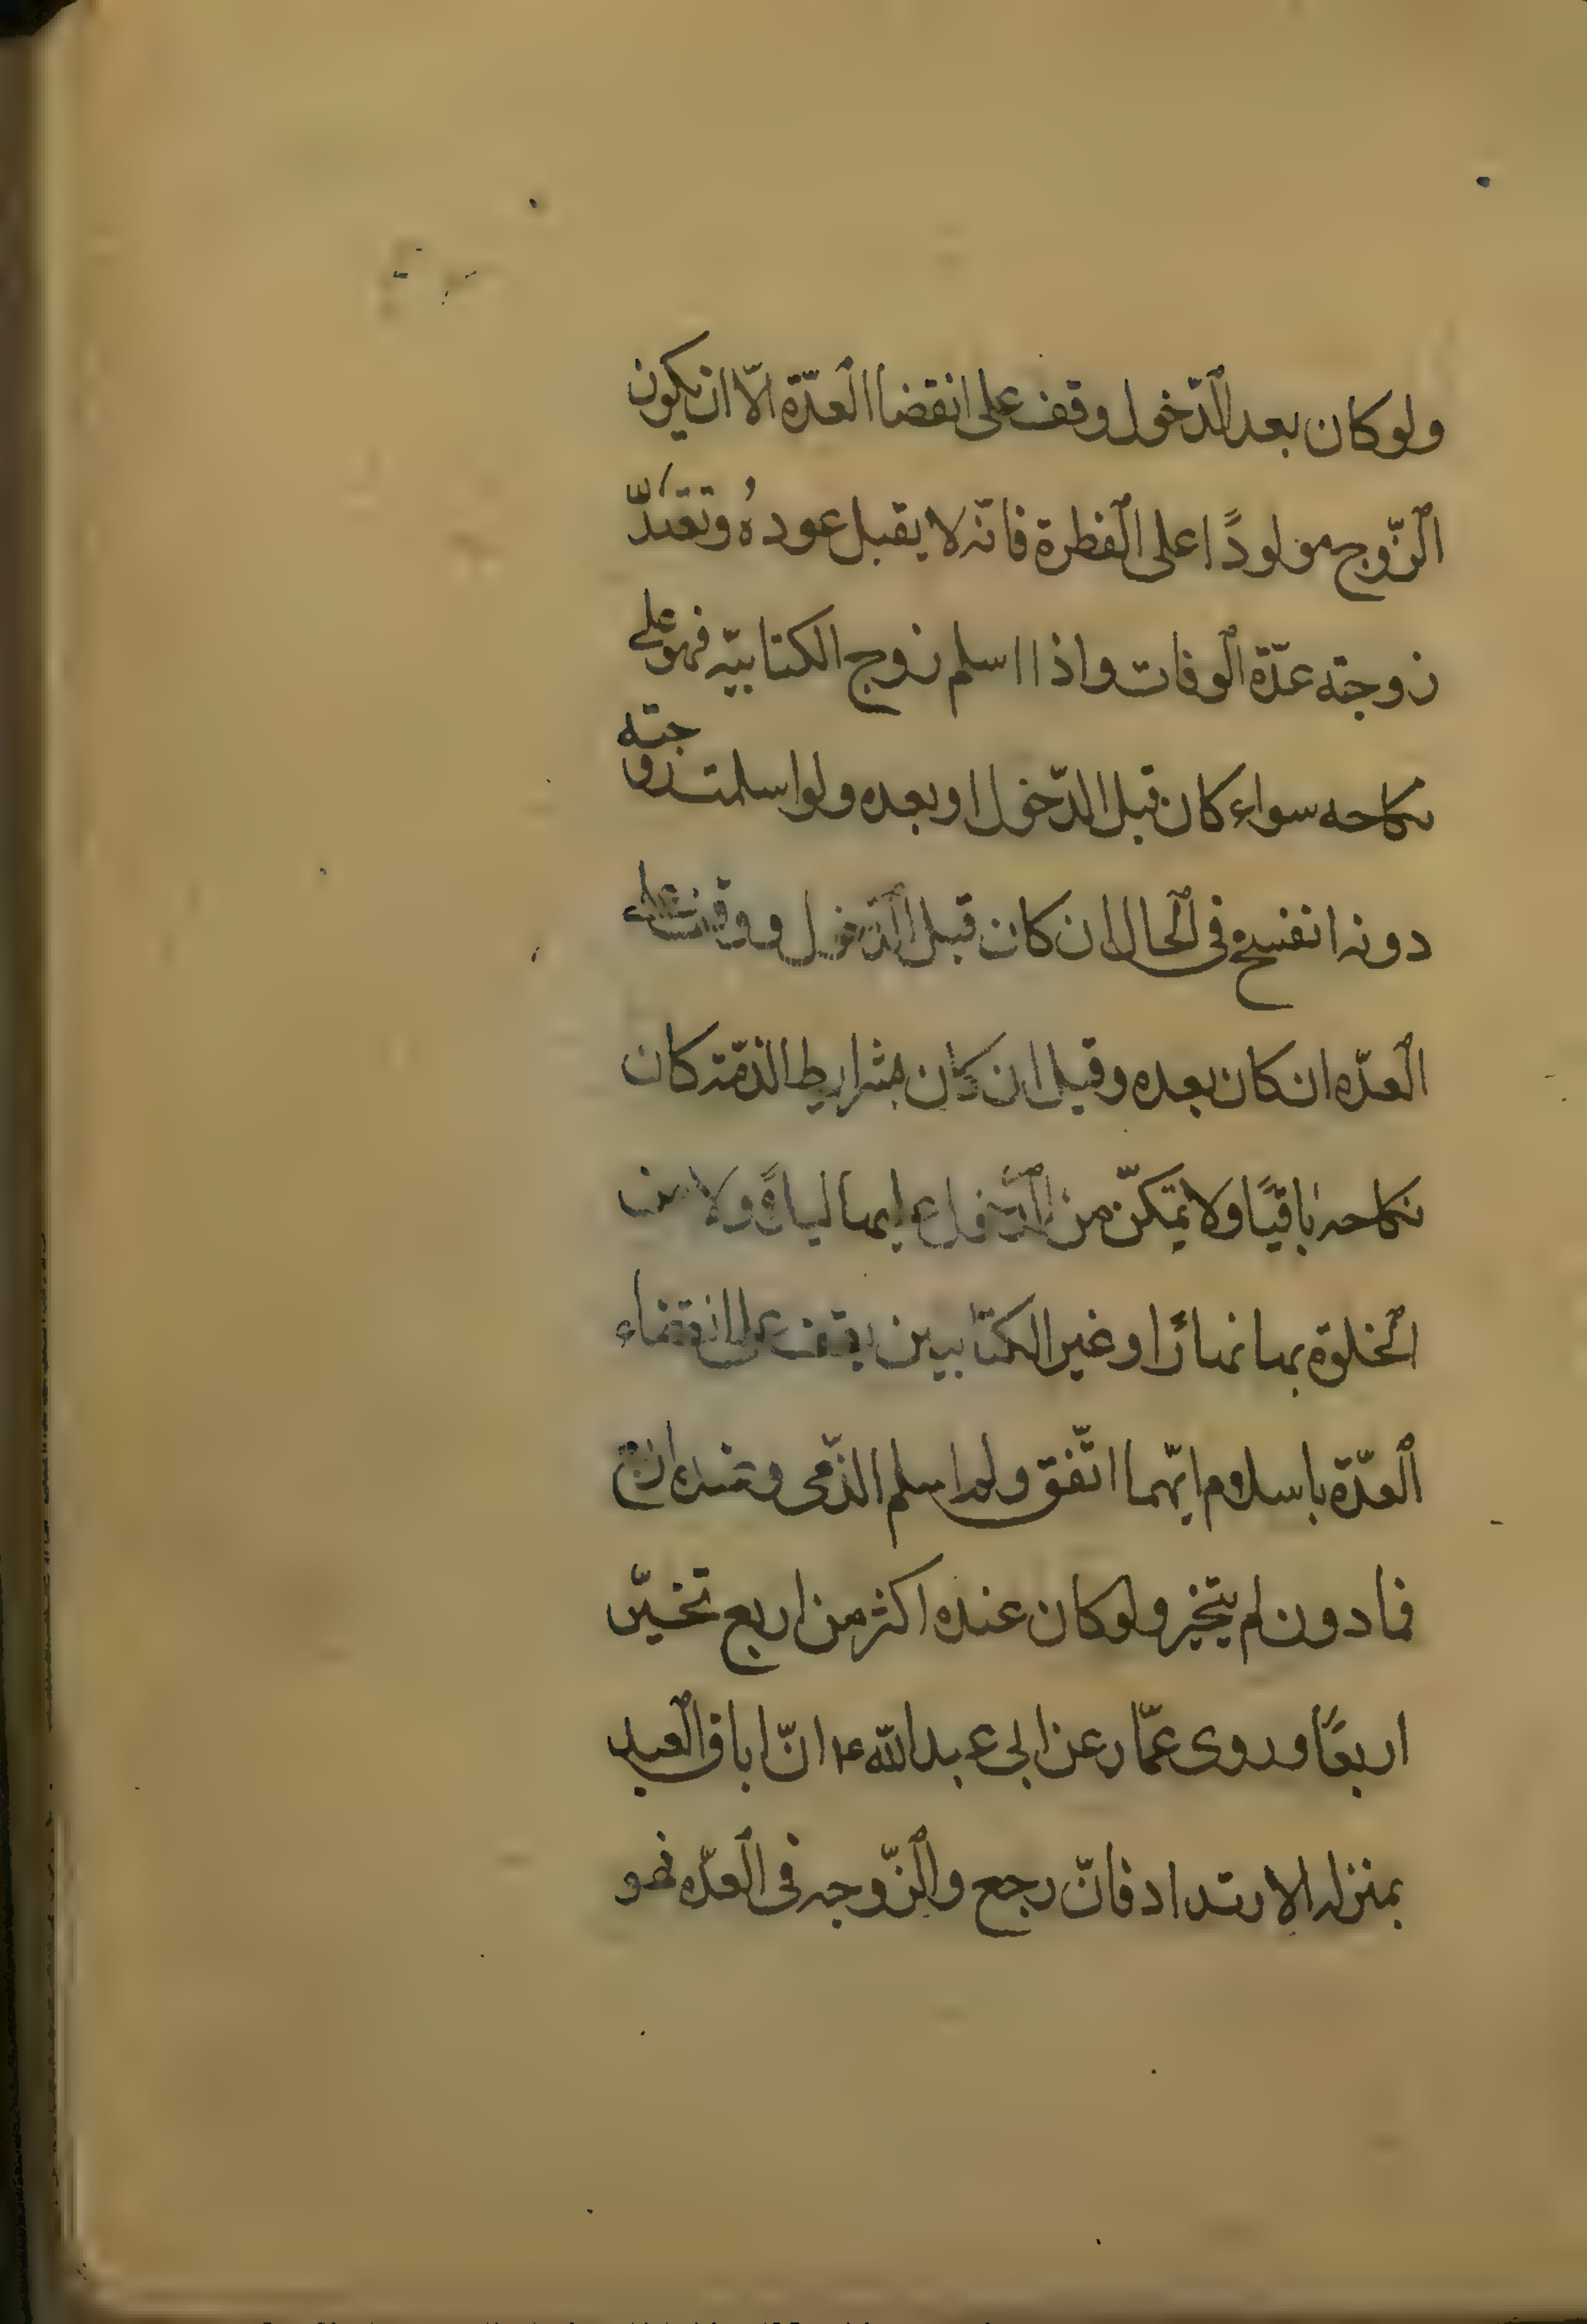 ولو كان بعد الدّخول وقف على انقضا العدّة الّا ان يكون
الزّوج مولودًا على الفطرة فانّه لا يقبل عودهُ وتعتدّ
زوجته عدّة الوفات واذا اسلم زوج الكتابيّه فهو على
نكاحه سواء كان قبل الدّخول او بعده ولو اسلمت زوجته
دونه انفسخ فى الحال ان كان قبل الدّخول ووقف على
العدّه ان كان بعده وقيل ان كان بشرايط الذمّة كان
نكاحه باقيًا ولا يتمكّن من الدّخول عليها ليلاً ولا من
الخلوة بها نهارًا وغير الكتابيين يقف على انقضاء
العدّة باسلام ايّهما اتّفق ولو اسلم الذّمى وعنده اربع
فما دون لم يتخير ولو كان عنده اكثر من اربع تخيّر
اربعًا وروى عمّار عن ابى عبد الله ع انّ اباق العبد
بمنزله الارتداد فانّ رجع والزّوجه فى العدّه فهو